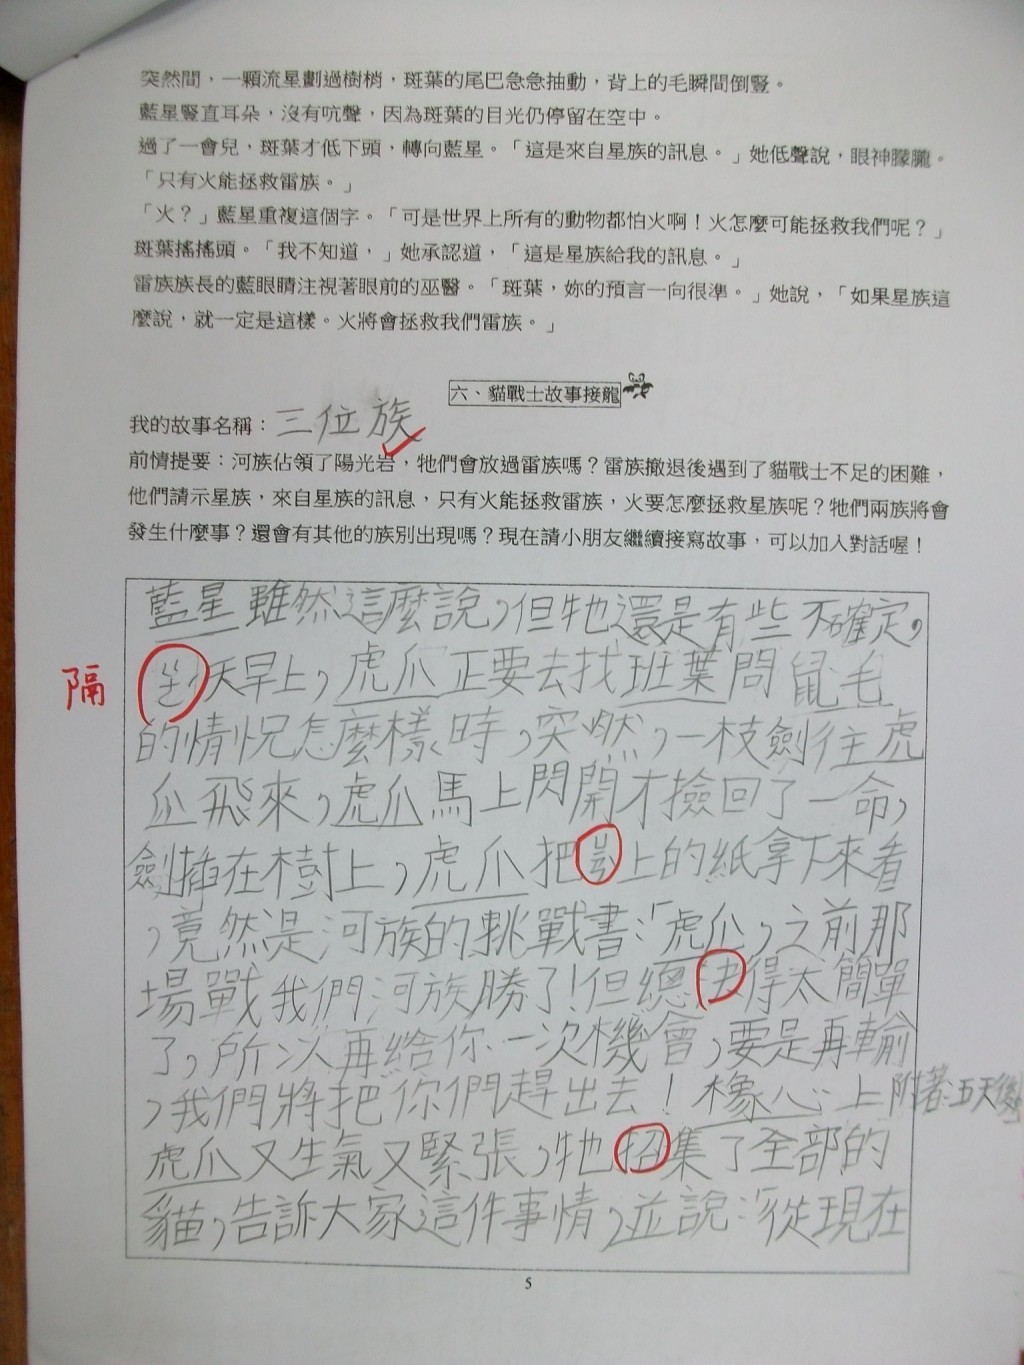 突然間，一顆流星劃過樹梢，斑葉的尾巴急急抽動，背上的毛瞬間倒豎。
藍星豎直耳朵，沒有吭聲，因為斑葉的目光仍停留在空中。
過了一會兒，斑葉才低下頭，轉向藍星。「這是來自星族的訊息。」她低聲說，眼神朦朧。
「只有火能拯救雷族。」
「火？」藍星重複這個字。「可是世界上所有的動物都怕火啊！火怎麼可能拯救我們呢？」
斑葉搖搖頭。「我不知道，」她承認道，「這是星族給我的訊息。」
雷族族長的藍眼睛注視著眼前的巫醫。「斑葉，妳的預言一向很準。」她說，「如果星族這
麼說，就一定是這樣。火將會拯救我們雷族。」
六、貓戰士故事接龍
我的故事名稱：三位族
前情提要：河族佔領了陽光岩，牠們會放過雷族嗎？雷族撤退後遇到了貓戰士不足的困難，
他們請示星族，來自星族的訊息，只有火能拯救雷族，火要怎麼拯救星族呢？牠們兩族將會
發生什麼事？還會有其他的族別出現嗎？現在請小朋友繼續接寫故事，可以加入對話喔！
藍星雖然這麼說，但牠還是有些不確定，
隔
天早上，虎爪正要去找班葉問鼠毛
的情況怎麼樣時，突然，一枝劍往虎
爪飛來，虎爪馬上閃開才撿回了一命，
劍插在樹上，虎爪把上的紙拿下來看
，竟然是河族的挑戰書：「虎爪，之前那
場戰我們河族勝了！但總得太簡單
了，所以再給你一次機會，要是再輸
，我們將把你們趕出去！橡心上
附著：五天後
虎爪又生氣又緊張，牠招集了全部的
貓，告訴大家這件事情，並說：「從現在
5